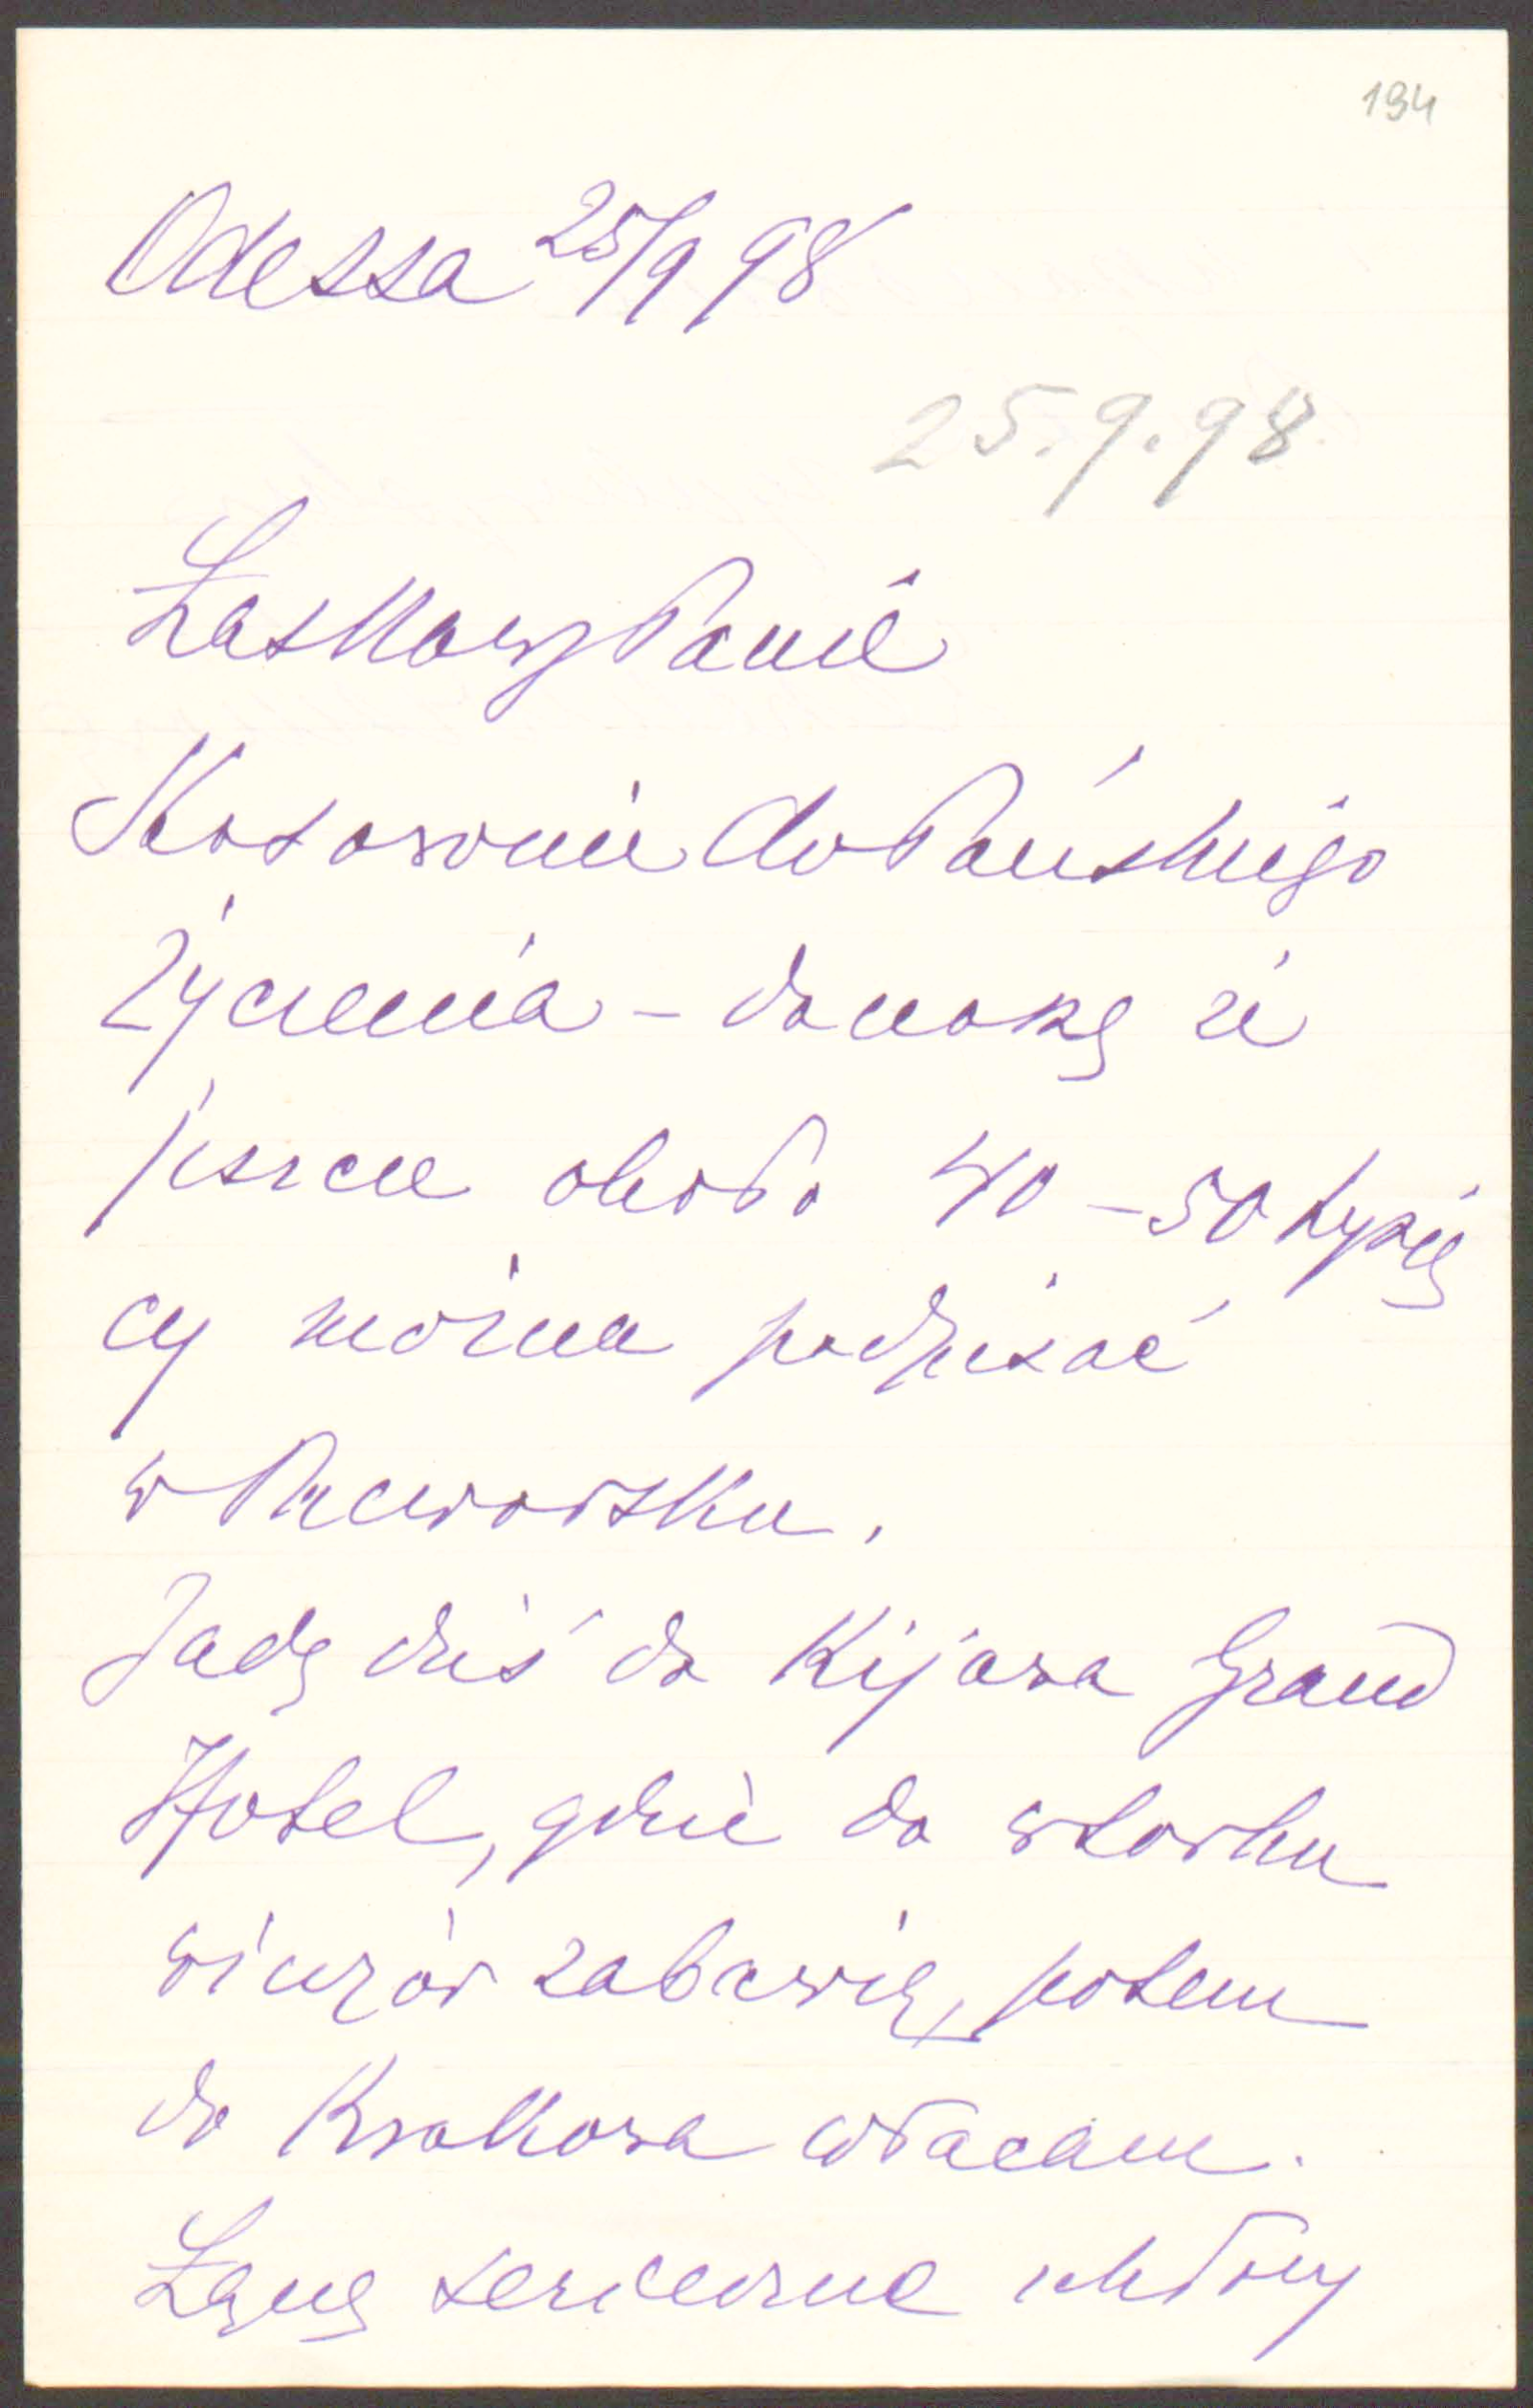 194
Odessa 25/9 98
25.9.98
Łaskawy Panie
Stosownie do Pańskiego
życzenia – donoszę że
jeszcze około 40 – 50 tysię
cy można podpisać
w Przeworsku.
Jadę dziś do Kijowa Grand
Hotel, gdzie do wtorku
wieczór zabawię, potem
do Krakowa wracam.
Łączę serdeczne ukłony